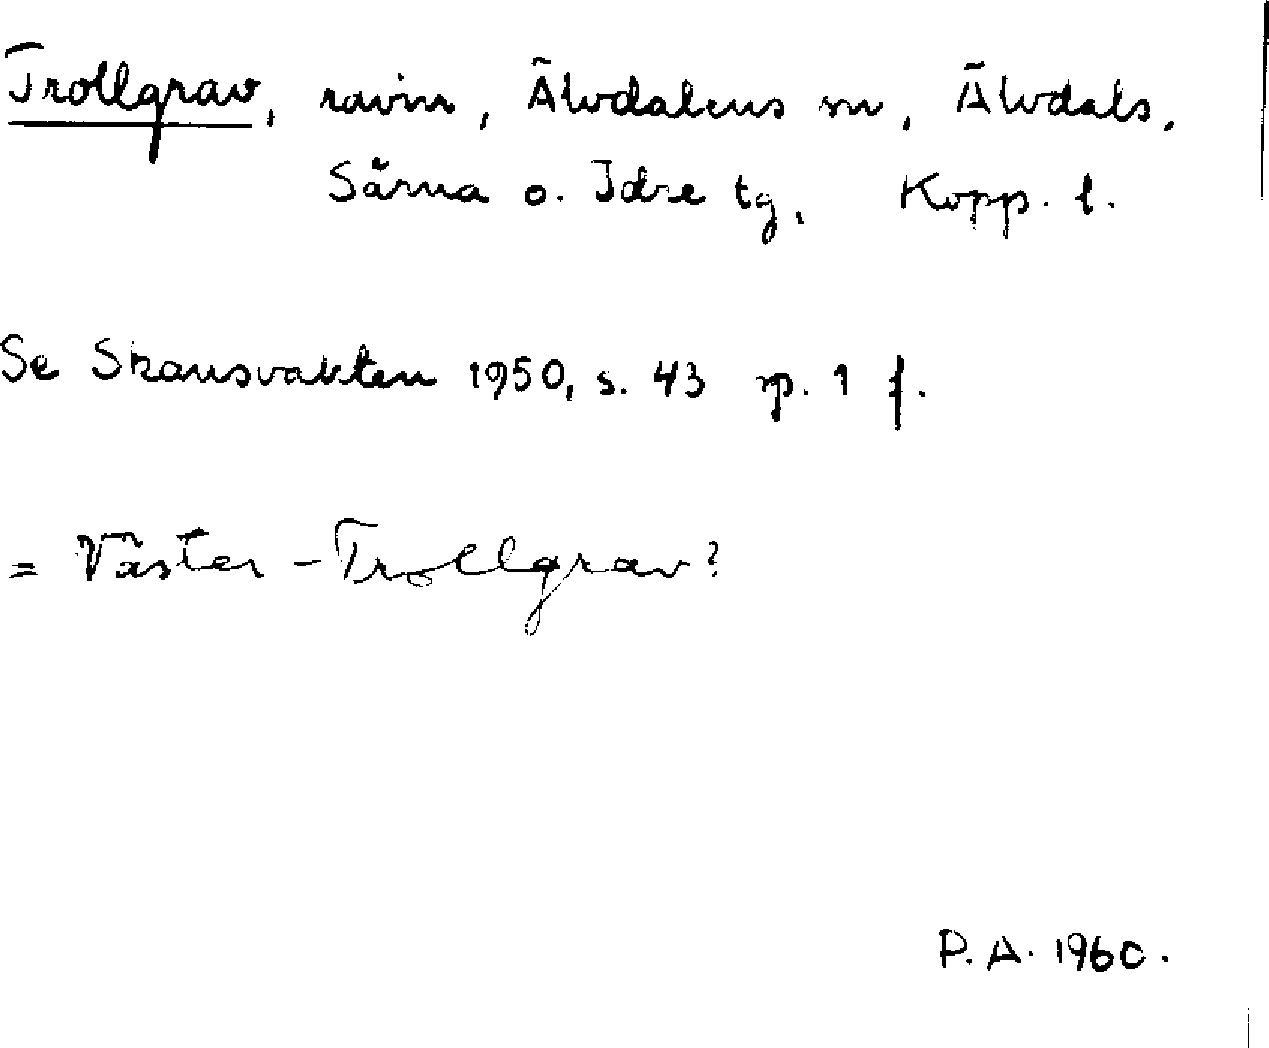 Trollgrav, ravin, Älvdalens sn, Älvdals,
Särna o. Idre tg, Kopp. l.
Se Skansvakten 1950, s. 43 sp. 1 f.
= Väster-Trollgrav?
P. A. 1960.